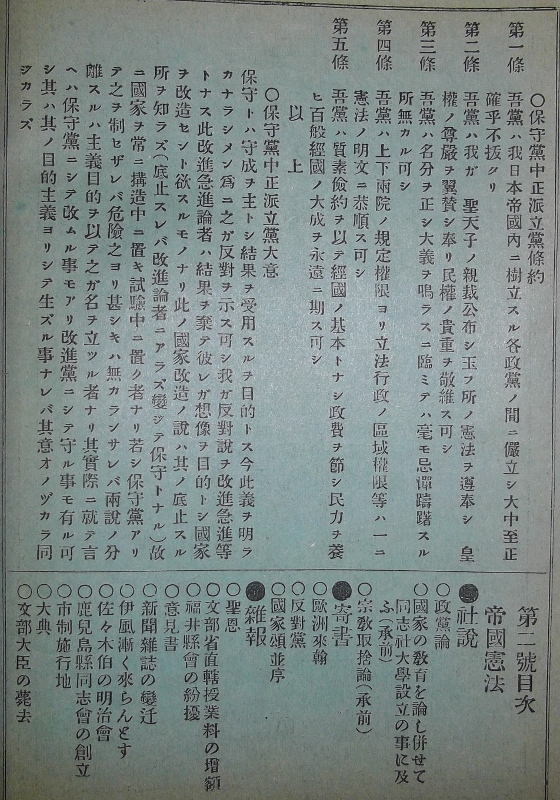 〇保守黨中正派立黨條約
第一條　吾黨ハ我日本帝國內ニ樹立スル各政黨ノ間ニ儼立シ大中至正
確乎不拔タリ
第二條　吾黨ハ我ガ　聖天子ノ親裁公布シ玉フ所ノ憲法ヲ遵奉シ　皇
權ノ尊嚴ヲ翼贊シ奉リ民權ノ貴重ヲ敬維ス可シ
第三條　吾黨ハ名分ヲ正シ大義ヲ鳴ラスニ臨ミテハ毫モ忌憚躊躇スル
所無カル可シ
第四條　吾黨ハ上下兩院ノ規定權限ヨリ立法行政ノ區域權限等ハ一ニ
憲法ノ明文ニ恭順ス可シ
第五條　吾黨ハ質素儉約ヲ以テ經國ノ基本トナシ政費ヲ節シ民力ヲ養
ヒ百般經國ノ大成ヲ永遠ニ期ス可シ
以上
〇保守黨中正派立黨大意
保守トハ守成ヲ主トシ結果ヲ受用スルヲ目的トス今此義ヲ明ラ
カナラシメン爲ニ之ガ反對ヲ示ス可シ我ガ反對說ヲ改進急進等
トナス此改進急進論者ハ結果ヲ棄テ彼レガ想像ヲ目的トシ國家
ヲ改造セント欲スルモノナリ此ノ國家改造ノ說ハ其ノ底止スル
所ヲ知ラズ(底止スレバ改進論者ニアラズ變ジテ保守トナル)故
ニ國家ヲ常ニ搆造中ニ置キ試驗中ニ置ク者ナリ若シ保守黨アリ
テ之ヲ制セザレバ危險之ヨリ甚シキハ無カランサレバ兩說ノ分
離スルハ主義目的ヲ以テ之ガ名ヲ立ツル者ナリ其實際ニ就テ言
ヘハ保守黨ニシテ改ムル事モアリ改進黨ニシテ守ル事モ有ル可
シ其ハ其ノ目的主義ヨリシテ生ズル事ナレバ其意オノヅカラ同
ジカラズ
第二號目次
帝國憲法
●社說
〇政黨論
〇國家の敎育を論し併せて
同志社大學設立の事に及
ふ(承前)
〇宗敎取捨論(承前)
●寄書
〇歐洲來翰
〇反對黨
〇國家頌並序
●雜報
〇聖恩
〇文部省直轄授業料の增額
〇福井縣會の紛擾
〇意見書
〇新聞雜誌の變迁
〇伊風漸く來らんとす
〇佐々木伯の明治會
〇鹿兒島縣同志會の創立
〇市制施行地
〇大典
〇文部大臣の薨去